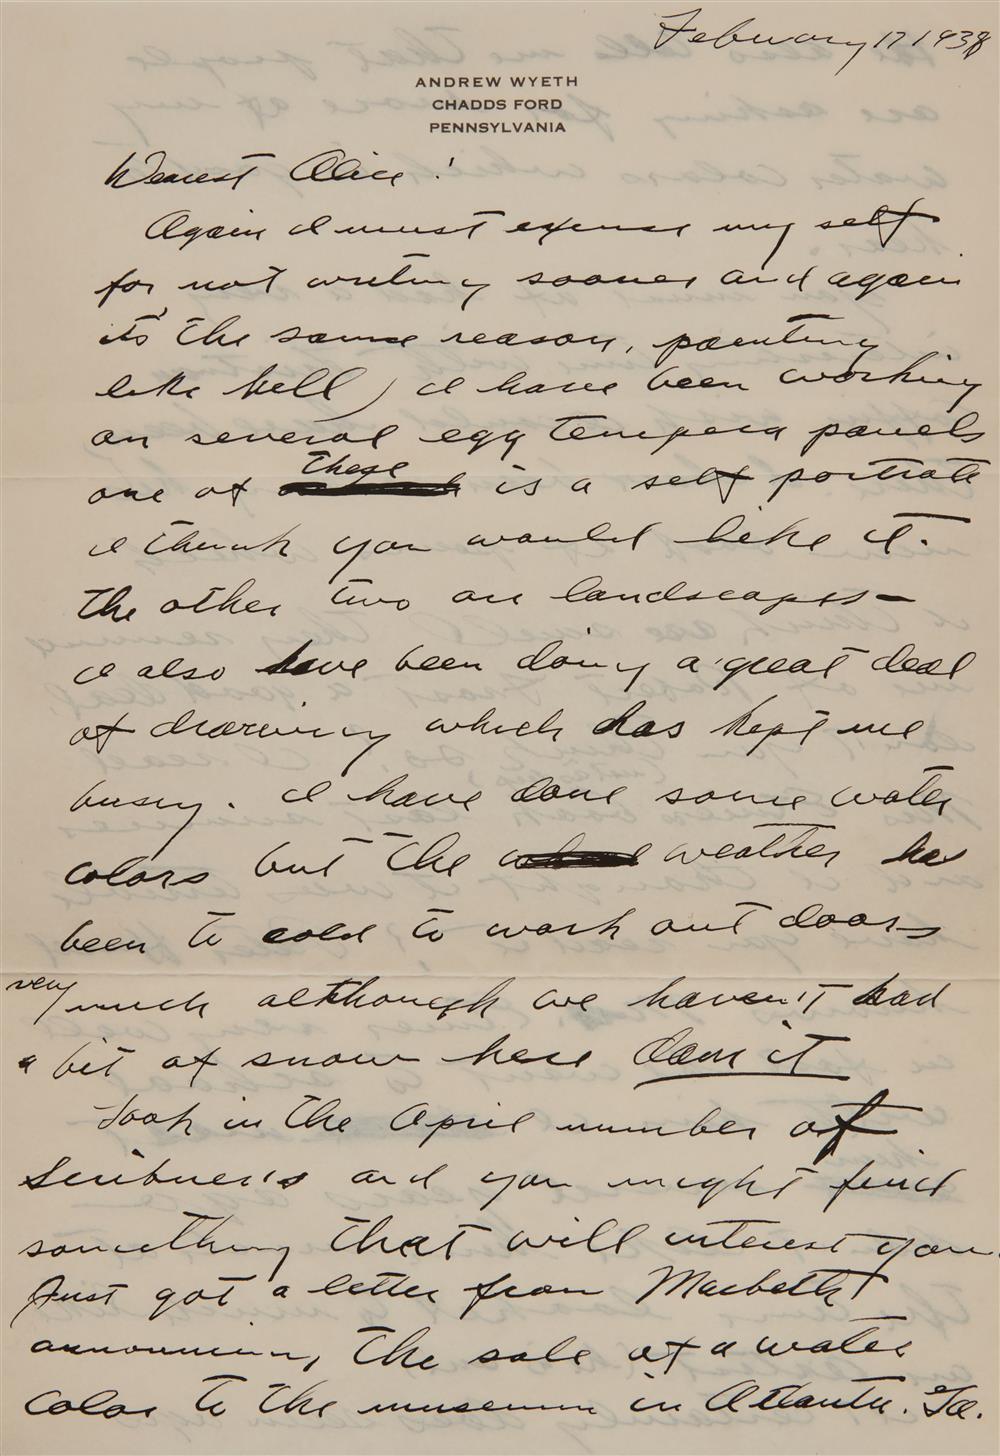 February 17 1938
ANDREW WYETH
CHADDS FORD
PENNSYLVANIA
Dearest Alice!
Again I must expense my self
for not writing sooner and again
it's the same reason, painting
like hell, I have been working
on several egg tempera panels
one of these is a self portrate
I think you would like it.
The other two are landscapes—
I also have been doing a great deal
of drawing which has kept me
busy. I have done some water
colors but the weather has
been to cold to work out doors
very much although we haven't had
a bit of snow here Dam it
Look in the April number of
Scribner's and you might find
something that will interest you.
Just got a letter from Macbeth
announcing the sale of a water
color to the museum in Atlanta. Ga.